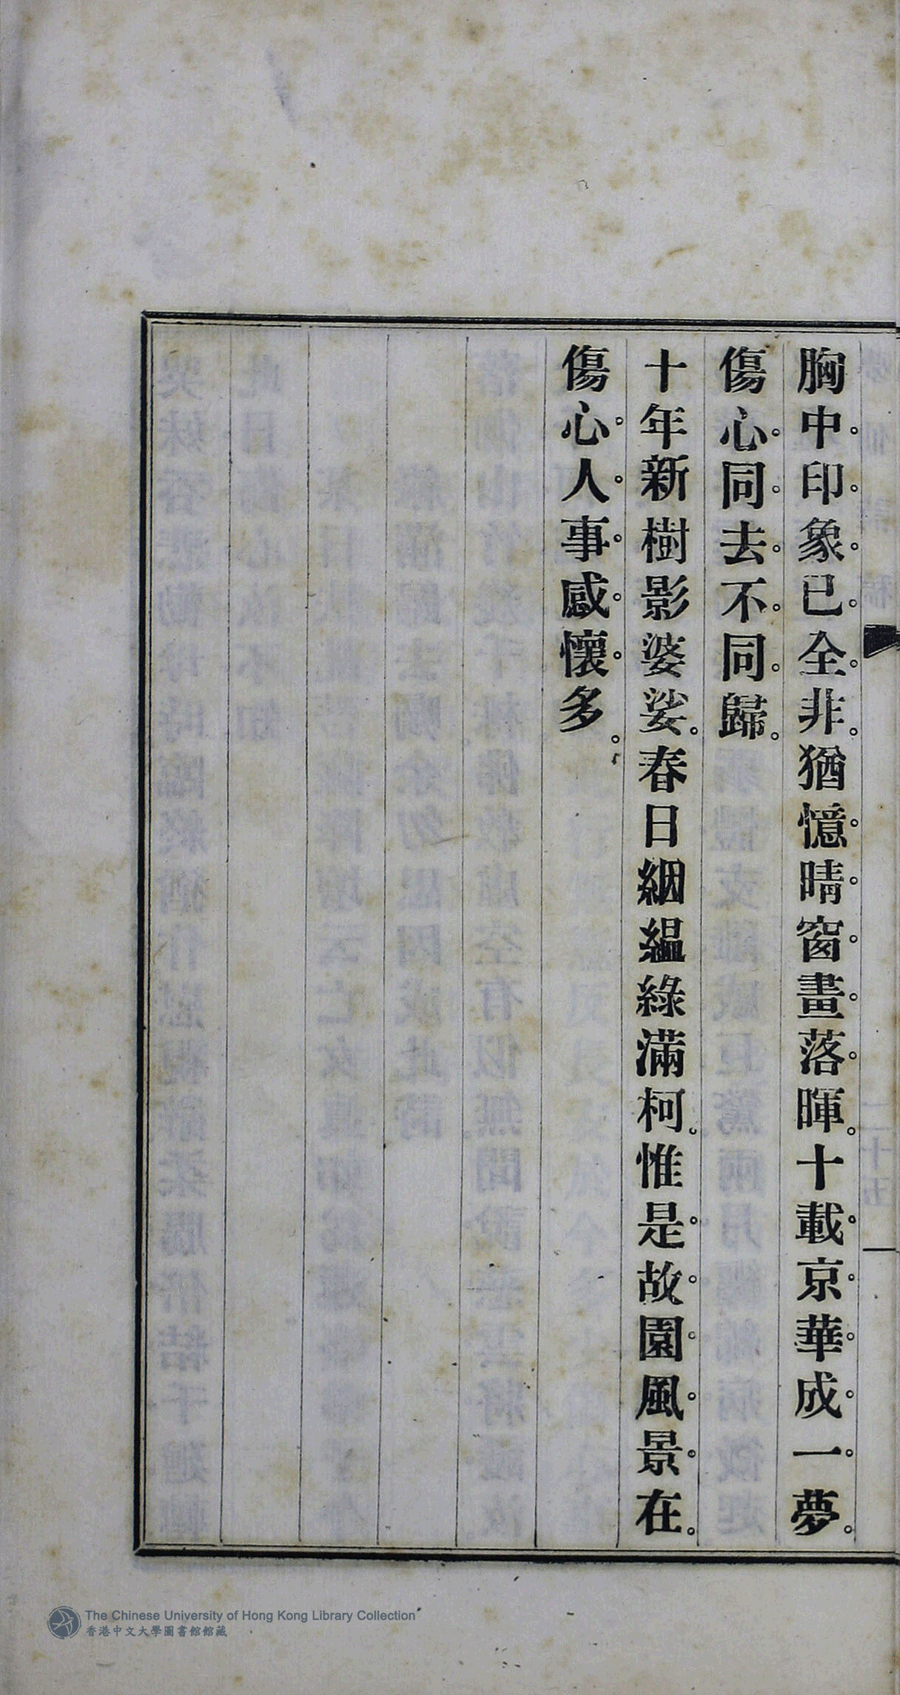 胸中印象已全非。猶憶晴窗畫落暉。十載京華成一夢。
傷心同去不同歸。
十年新樹影婆娑。春日絪縕綠滿柯。惟是故園風景在。
傷心人事感懷多。
二十五
The Chinese University of Hong Kong Library Collection
香港中文大學圖書館館藏